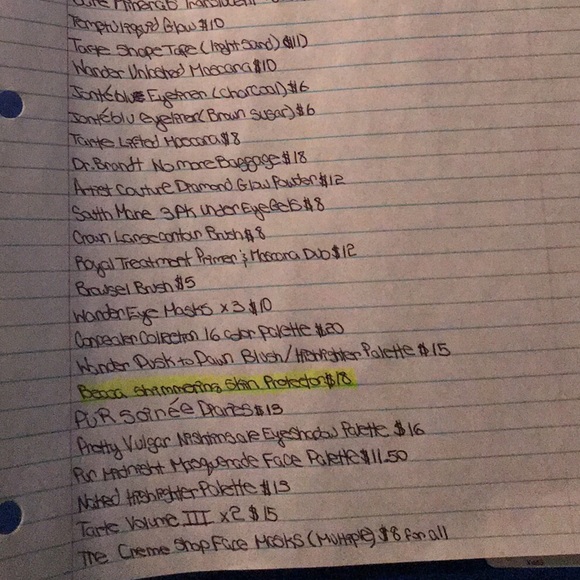 Minerals Translucent
Temptu Liquid Glow $10
Tarte Shape Tape (light sand) $10
Wander Unlashed Mascara $10
Jontéblu Eyeliner (charcoal) $6
Jontéblu eyeliner (Brown Sugar) $6
Tarte Lifted Mascara $8
Dr. Brandt No more Baggage $18
Artist Couture Diamond Glow Powder $12
Saith Marie 3pk Under Eye Gels $8
Crown Large contour Brush $8
Royal Treatment Primer & Mascara Duo $12
Brush $5
Wander Eye Masks x3 $10
Concealer Collection 16 color Palette $20
Wander Dusk to Dawn Blush/Highlighter Palette $15
Becca Shimmering Skin Protector $18
PÜR Soirée Diaries $13
Pretty Vulgar Nightingale Eyeshadow Palette $16
Pur Midnight Masquerade Face Palette $11.50
Highlighter Palette $13
Tarte Volume III x2 $15
The Creme Shop Face Masks (Multiple) $8 for all